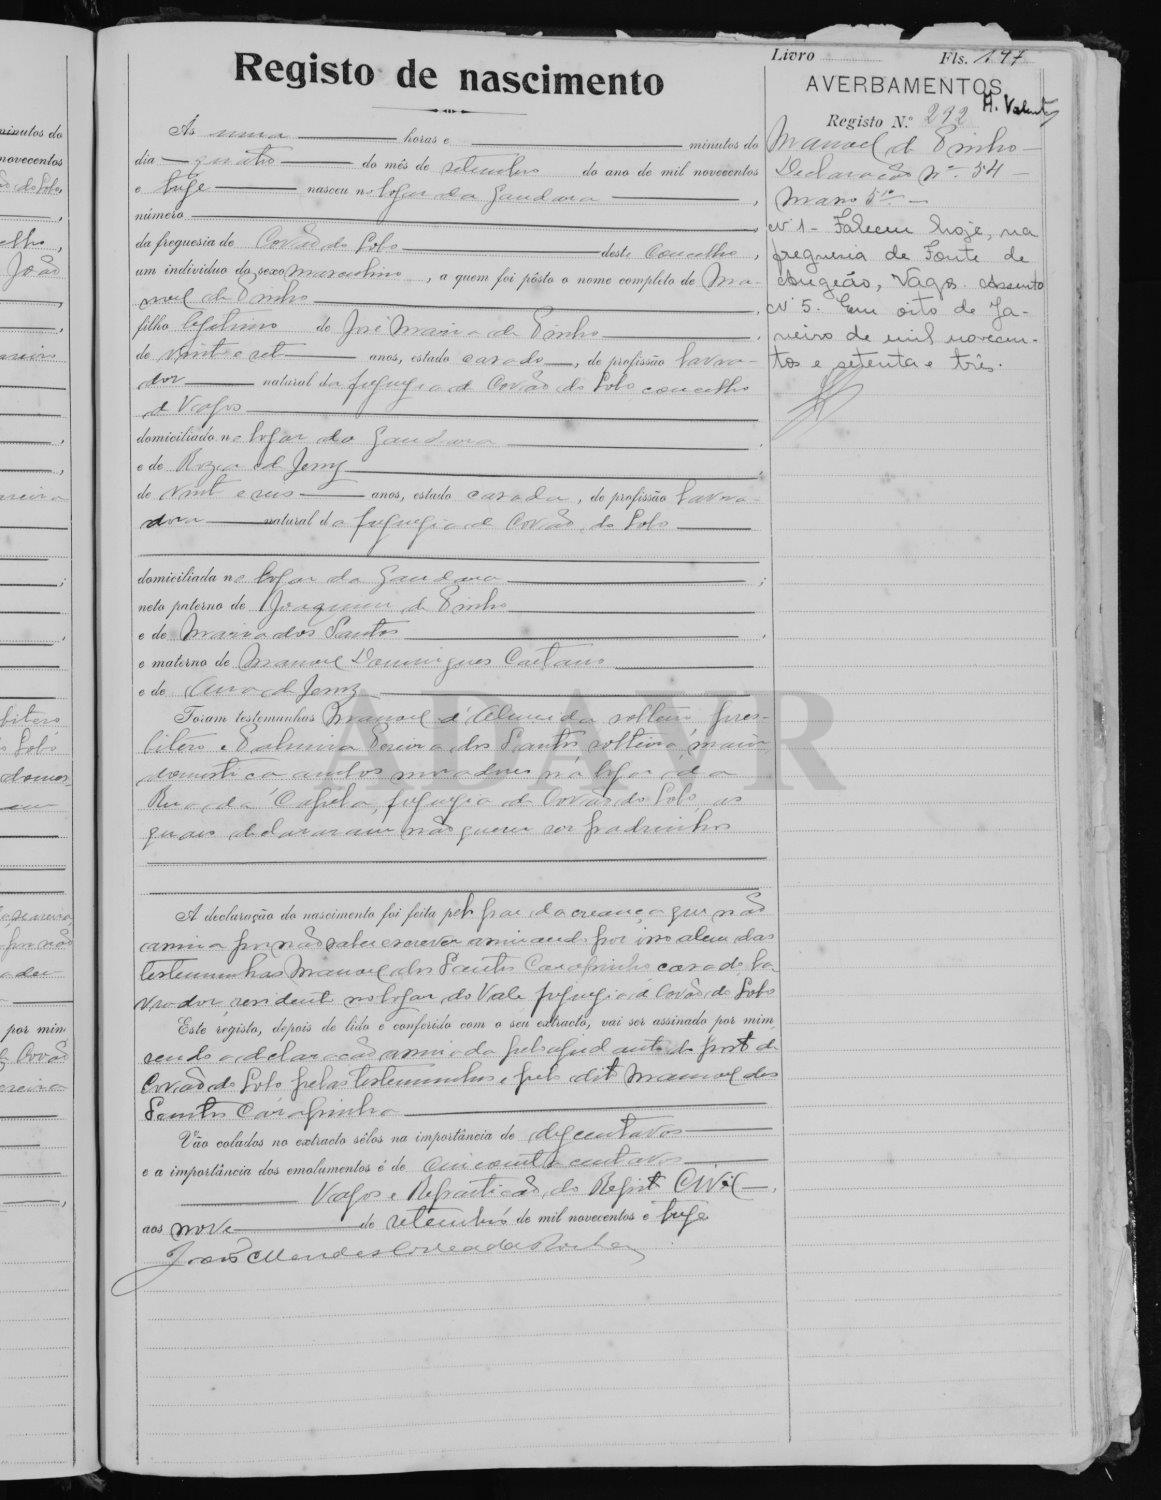 Registo de nascimento
Ás uma horas e minutos do
dia quatro do mês de setembro do ano de mil novecentos
e treze nasceu no logar da Gandara,
número
da freguesia de Covão do Lobo deste concelho,
um individuo do sexo masculino, a quem foi pôsto o nome completo de Ma-
nuel de Pinho,
filho legitimo de José Maria de Pinho,
de vinte e sete anos, estado casado, de profissão lavra-
dor natural da freguesia de Covão do Lobo concelho
de Vagos
domiciliado no logar da Gandara
e de Roza de Jesus
de vinte e seis anos, estado casada, de profissão lavra-
dora natural da freguesia de Covão do Lobo
domiciliada no logar da Gandara;
neto paterno de Joaquim de Pinho
e de Maria dos Santos,
e materno de Manoel Domingues Caetano
e de Ana de Jesus
Foram testemunhas Manoel d'Almeida solteiro, pres-
bitero e Palmira Pereira dos Santos solteira, maior
domestica ambos moradores no logar da
Rua da Capela, freguesia de Covão do Lobo, os
quais declararam não querer ser padrinhos
A declaração do nascimento foi feita pelo pae da creança que não
assina por não saber escrever assinando por isso alem das
testemunhas Manoel dos Santos Carapinho casado, la-
vrador, residente no logar do Vale freguesia de Covão do Lobo
Este registo, depois de lido e conferido com o seu extracto, vai ser assinado por mim,
sendo a declaração assinada pelo ajudante do posto de
Covão do Lobo pelas testemunhas e pelo dito Manuel dos
Santos Carapinho
Vão colados no extracto sêlos na importância de dez centavos
e a importância dos emolumentos é de cincoenta centavos
Vagos e Repartição do Registo Civil,
aos nove de setembro de mil novecentos e treze
João Mendes Correia da Rocha
Livro Fls. 147
AVERBAMENTOS
Registo N.º 292
Manoel de Pinho
Declaração Nº 54
Maço 5º
Nº 1 - Faleceu hoje, na
freguesia de Fonte de
Angeão, Vagos. Assento
Nº 5. Em oito de Ja-
neiro de mil novecen-
tos e setenta e três.
ADAVR